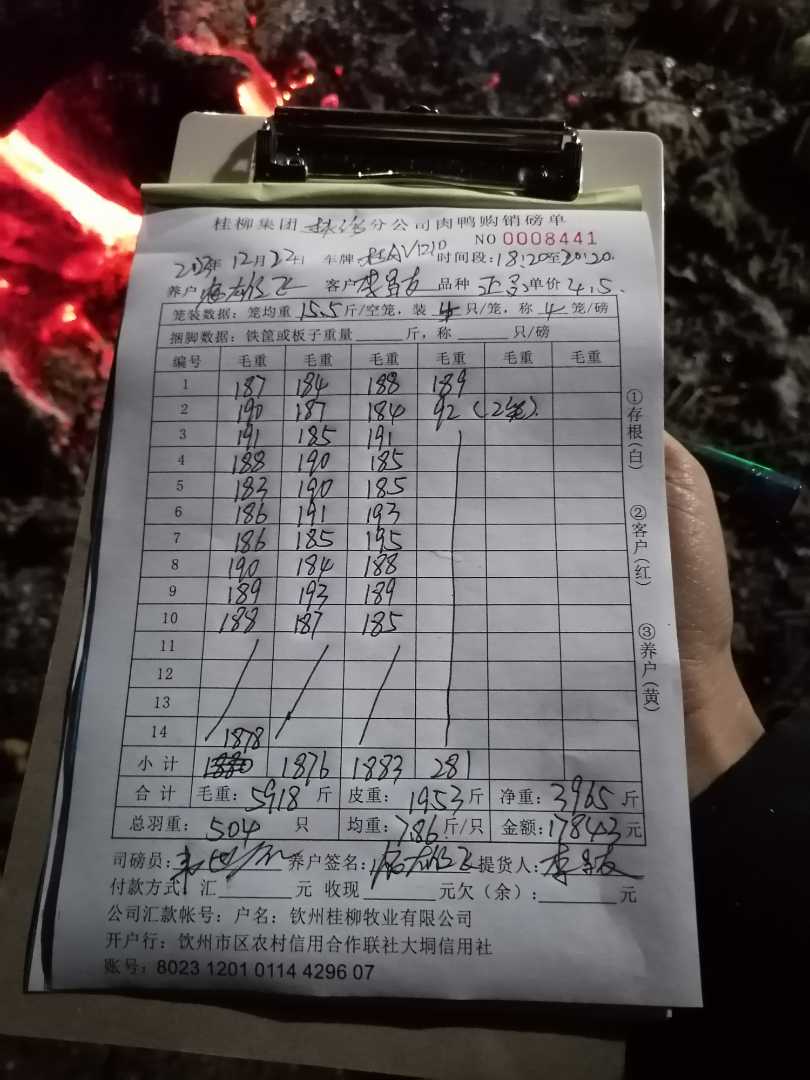 桂柳集团 分公司肉鸭购销磅单
NO 0008441
年12月22日 车牌 时间段:18:20至20:20
养户 客户 品种 单价4.5
笼装数据:笼均重15.5斤/空笼,装4只/笼,称4笼/磅
捆脚数据:铁筐或板子重量 斤,称 只/磅
编号 毛重 毛重 毛重 毛重 毛重 毛重
1 187 184 188 189
2 190 187 184 92 (2笼)
3 191 185 191
4 188 190 185
5 183 190 185
6 186 191 193
7 186 185 195
8 190 184 188
9 189 193 189
10 188 187 185
11
12
13
14
小计 1878 1876 1883 281
合计 毛重:5918斤 皮重:1953斤 净重:3965斤
总羽重:504只 均重:7.86斤/只 金额:17843元
司磅员: 养户签名: 提货人:
付款方式 汇 元 收现 元欠(余): 元
公司汇款帐号:户名:钦州桂柳牧业有限公司
开户行:钦州市区农村信用合作联社大垌信用社
账号:8023 1201 0114 4296 07
①存根(白)
②客户(红)
③养户(黄)